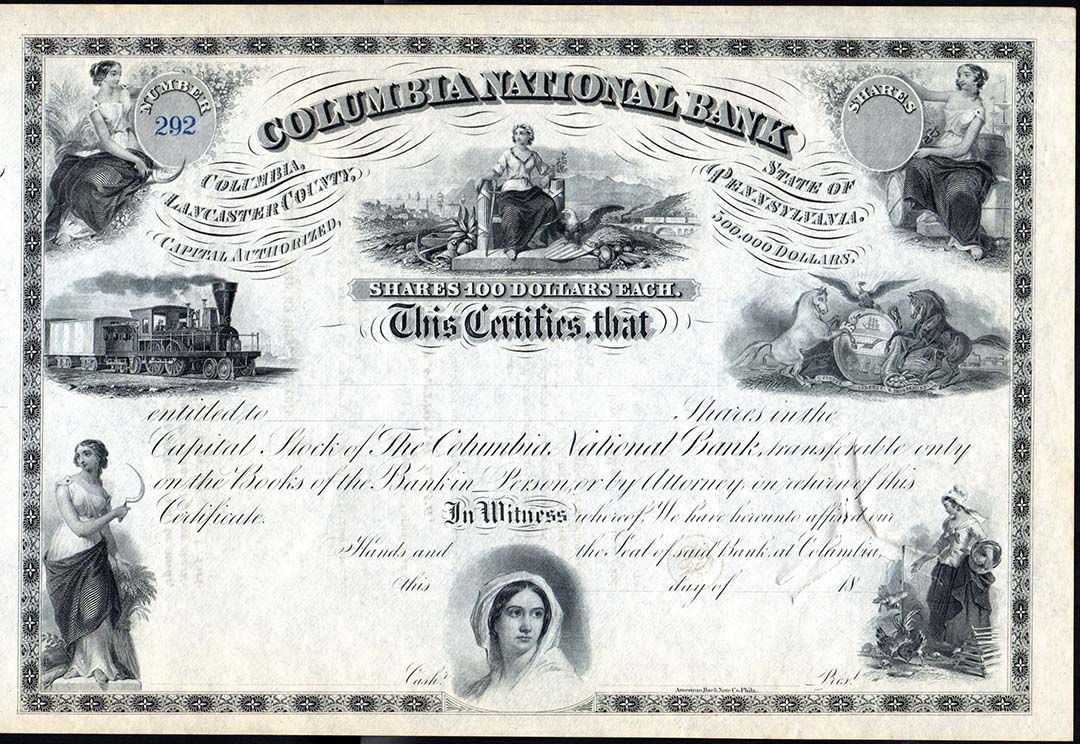 NUMBER
292
COLUMBIA NATIONAL BANK
SHARES
COLUMBIA,
LANCASTER COUNTY,
CAPITAL AUTHORIZED,
STATE OF
PENNSYLVANIA.
500.000 DOLLARS.
SHARES 100 DOLLARS EACH.
This Certifies, that
entitled to Shares in the
Capital Stock of The Columbia National Bank, transferable only
on the Books of the Bank in Person, or by Attorney on return of this
Certificate. In Witness whereof, We have hereunto affixed our
Hands and the Seal of said Bank, at Columbia,
this day of 18
Cashr. Prest.
American Bank Note Co. Phila.